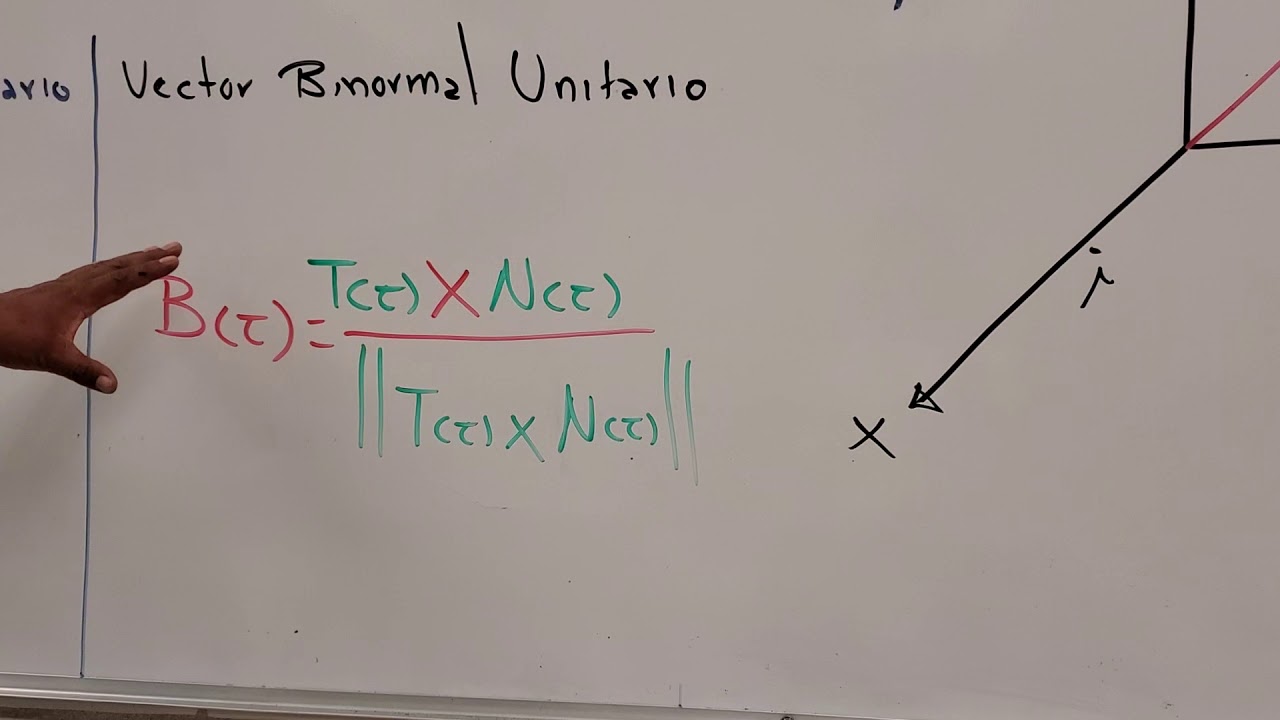 Vector Binormal Unitario
B(t) = T(t) X N(t)
|| T(t) x N(t) ||
i
X